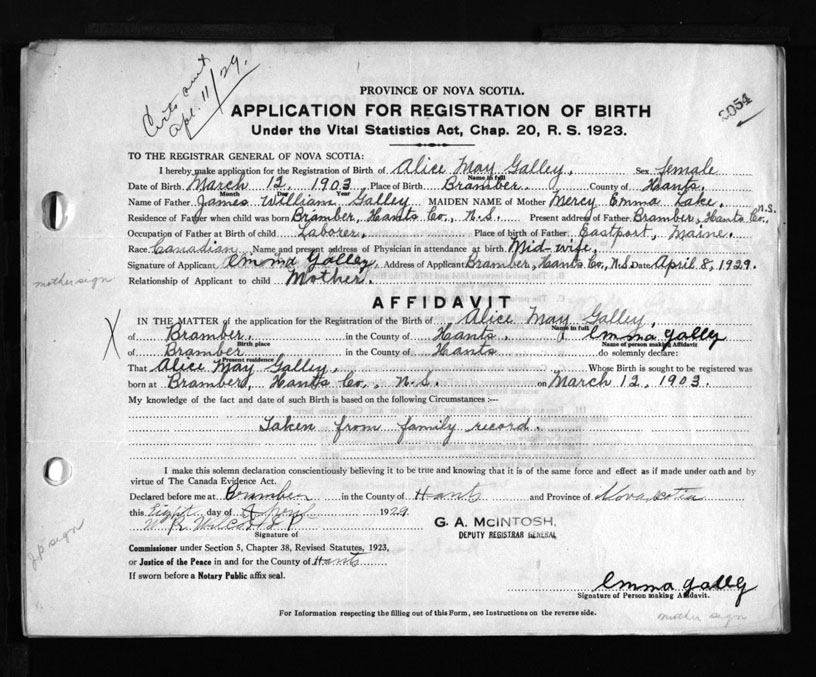 Certs sent
Apl. 11/29.
2054
PROVINCE OF NOVA SCOTIA.
APPLICATION FOR REGISTRATION OF BIRTH
Under the Vital Statistics Act, Chap. 20, R. S. 1923.
TO THE REGISTRAR GENERAL OF NOVA SCOTIA:
I hereby make application for the Registration of Birth of Alice May Galley. Sex female
Name in full
Date of Birth March 12, 1903 Place of Birth Bramber. County of Hants.
Month Day Year
Name of Father James William Galley MAIDEN NAME of Mother Mercy Emma Lake.
Residence of Father when child was born Bramber, Hants Co., N.S. Present address of Father Bramber, Hants Co., N.S.
Occupation of Father at Birth of child Laborer. Place of birth of Father Eastport, Maine.
Race Canadian Name and present address of Physician in attendance at birth Mid-wife.
Signature of Applicant Emma Galley, Address of Applicant Bramber, Hants Co, N.S. Date April 8, 1929.
Relationship of Applicant to child Mother.
mother sign
AFFIDAVIT
IN THE MATTER of the application for the Registration of the Birth of Alice May Galley,
Name in full
X
of Bramber. in the County of Hants. I Emma Galley
Birth place
Name of person making Affidavit
of Bramber in the County of Hants do solemnly declare:
Present residence
That Alice May Galley. Whose Birth is sought to be registered was
born at Bramber, Hants Co., N.S. on March 12, 1903.
My knowledge of the fact and date of such Birth is based on the following Circumstances :—
Taken from family record.
I make this solemn declaration conscientiously believing it to be true and knowing that it is of the same force and effect as if made under oath and by
virtue of The Canada Evidence Act.
Declared before me at Bramber in the County of Hants and Province of Nova Scotia
this Eight day of April 1929.
W. R. Wilcox J P
Signature of
G. A. McINTOSH,
DEPUTY REGISTRAR GENERAL
J.P. sign
Commissioner under Section 5, Chapter 38, Revised Statutes, 1923,
or Justice of the Peace in and for the County of Hants
If sworn before a Notary Public affix seal.
Emma Galley
Signature of Person making Affidavit.
mother sign
For Information respecting the filling out of this Form, see Instructions on the reverse side.